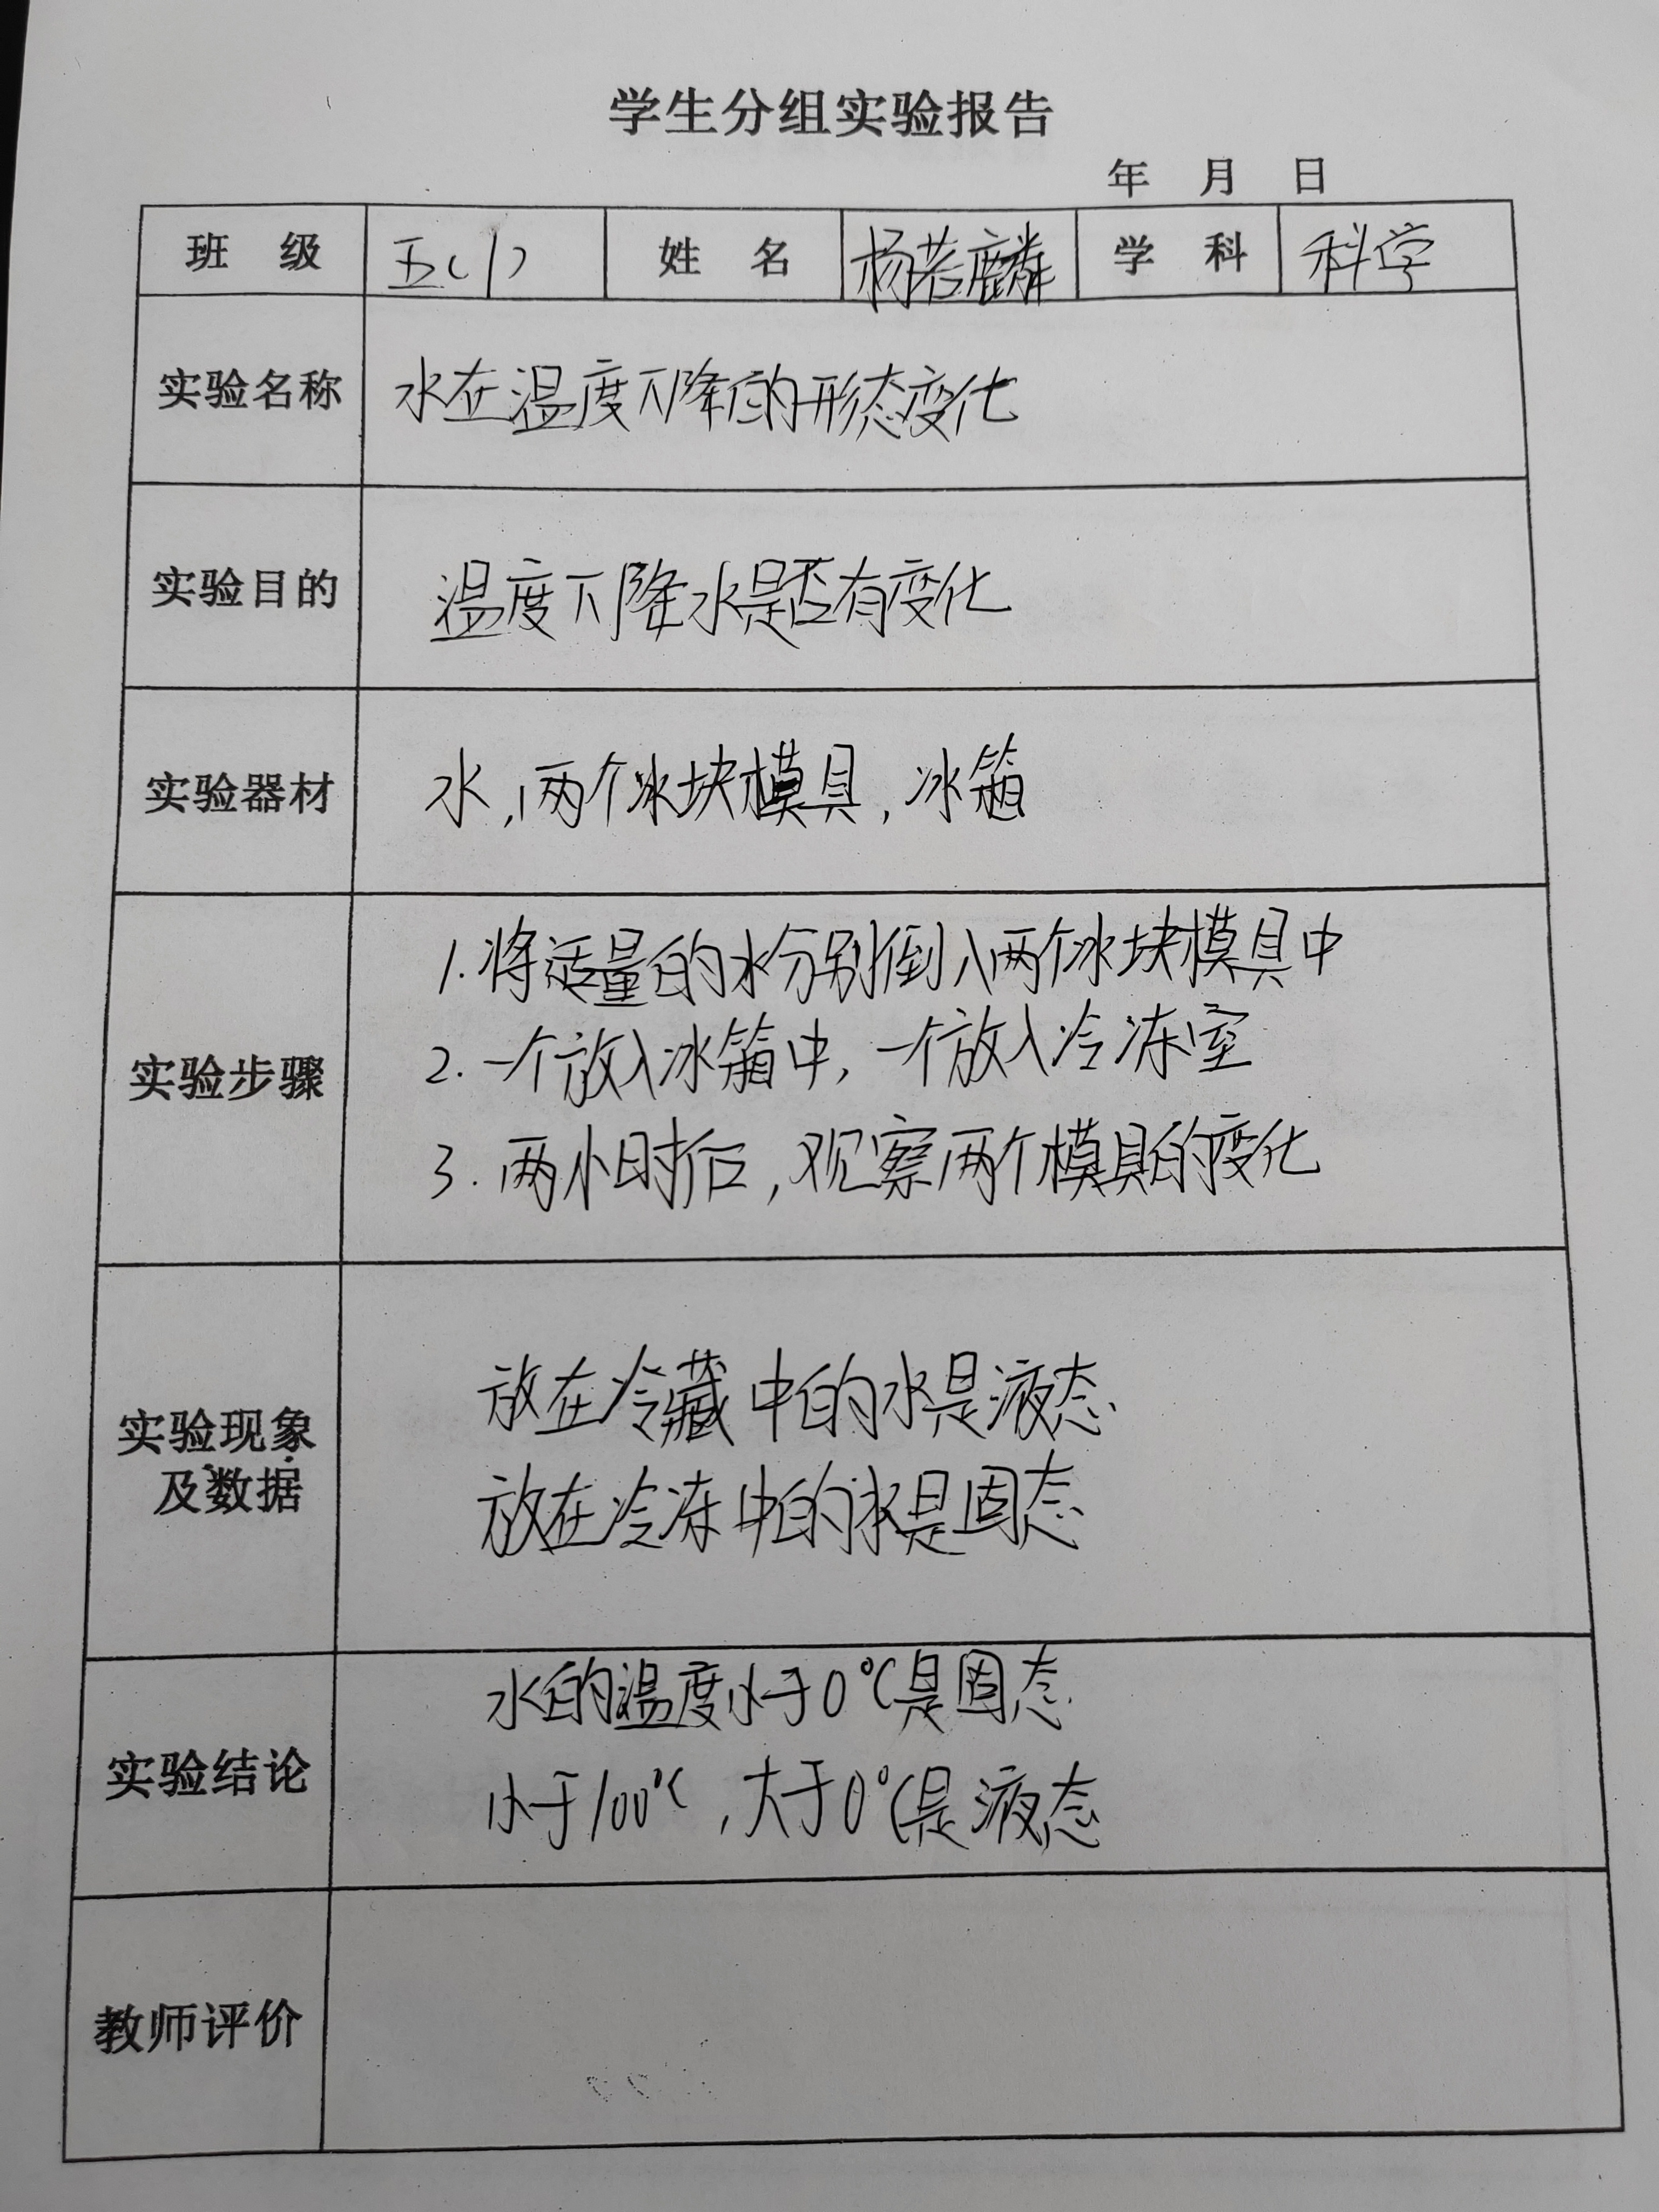 学生分组实验报告
年 月 日
班 级 五(1) 姓 名 杨若麟 学 科 科学
实验名称 水在温度下降的形态变化
实验目的 温度下降水是否有变化
实验器材 水,两个冰块模具,冰箱
实验步骤
1.将适量的水分别倒入两个冰块模具中
2.一个放入冰箱中,一个放入冷冻室
3.两小时后,观察两个模具的变化
实验现象
及数据
放在冷藏中的水是液态.
放在冷冻中的水是固态
实验结论
水的温度小于0℃是固态.
小于100℃,大于0℃是液态
教师评价